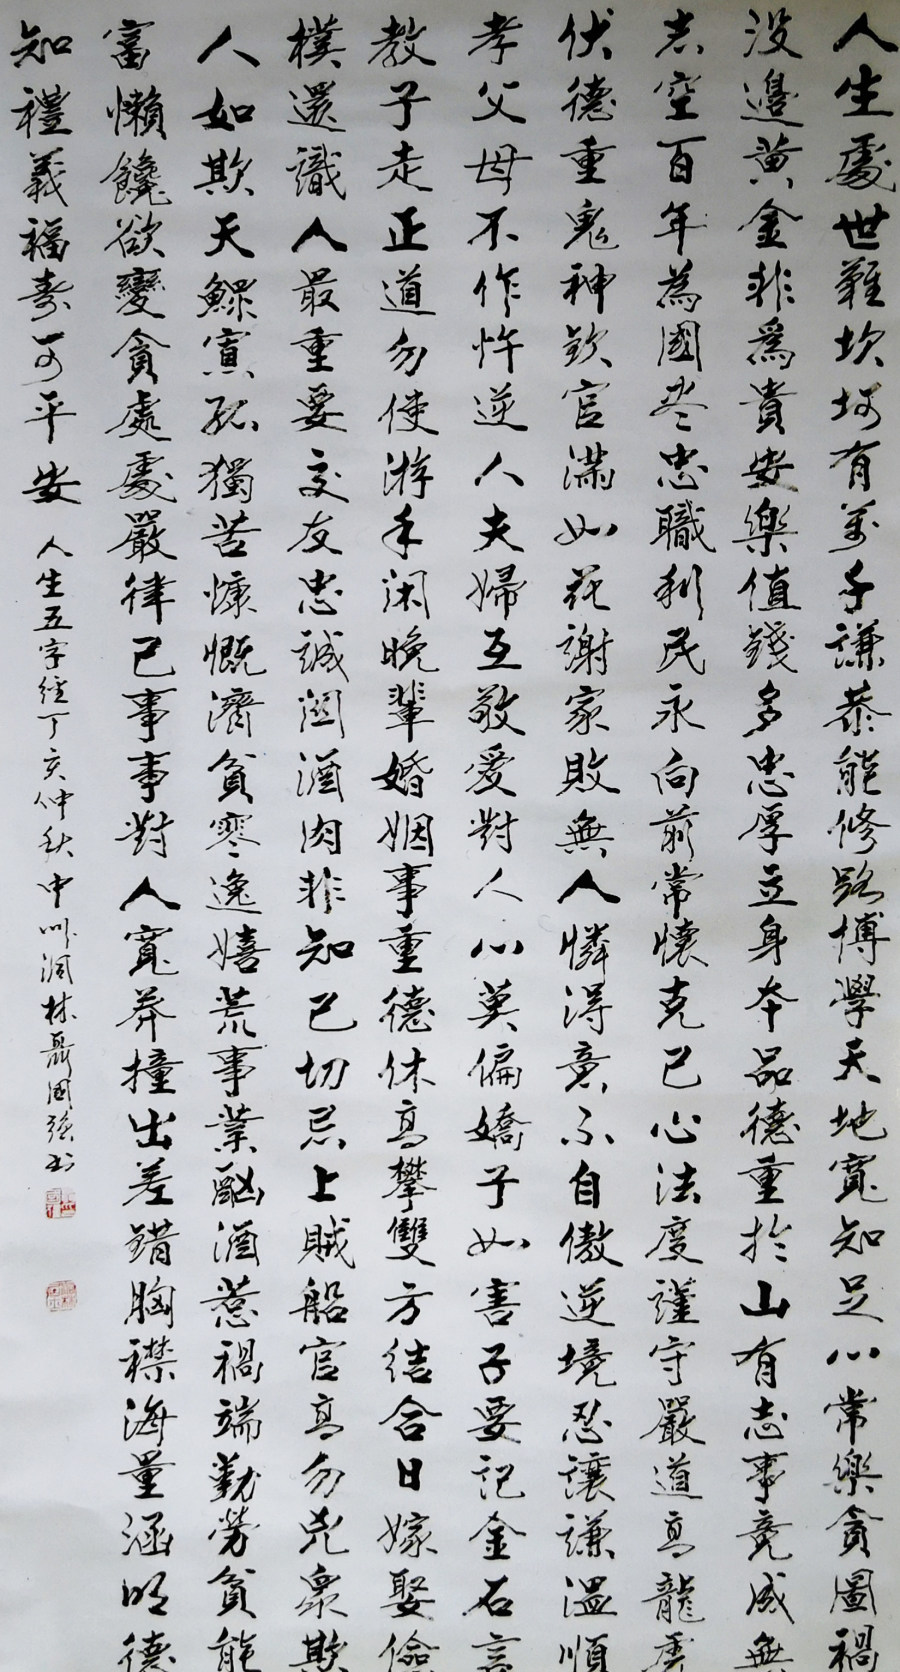 人生處世難坎坷有萬千謙恭能修路博學天地寬知足心常樂貪圖禍
沒邊黄金非爲貴安樂值錢多忠厚立身本品德重於山有志事竟成無
志空百年為國尽忠職利民永向前常懷克己心法度謹守嚴道高龍虎
伏德重鬼神欽官滿如花謝家敗無人憐得意不自傲逆境忍讓謙溫順
孝父母不作忤逆人夫婦互敬愛對人心莫偏嬌子如害子要記金石言
教子走正道勿使游手闲晚輩婚姻事重德休高攀雙方结合日嫁娶儉
樸還識人最重要交友忠誠関酒肉非知己切忌上賊船官高勿兇衆欺
人如欺天鰥寡孤獨苦慷慨濟貧寒逸嬉荒事業酗酒惹禍端勤勞貧能
富懶饞欲變貪處處嚴律己事事對人寬莽撞出差錯胸襟海量涵明德
知禮義福壽可平安
人生五字经丁亥仲秋中州洞林聶國強书